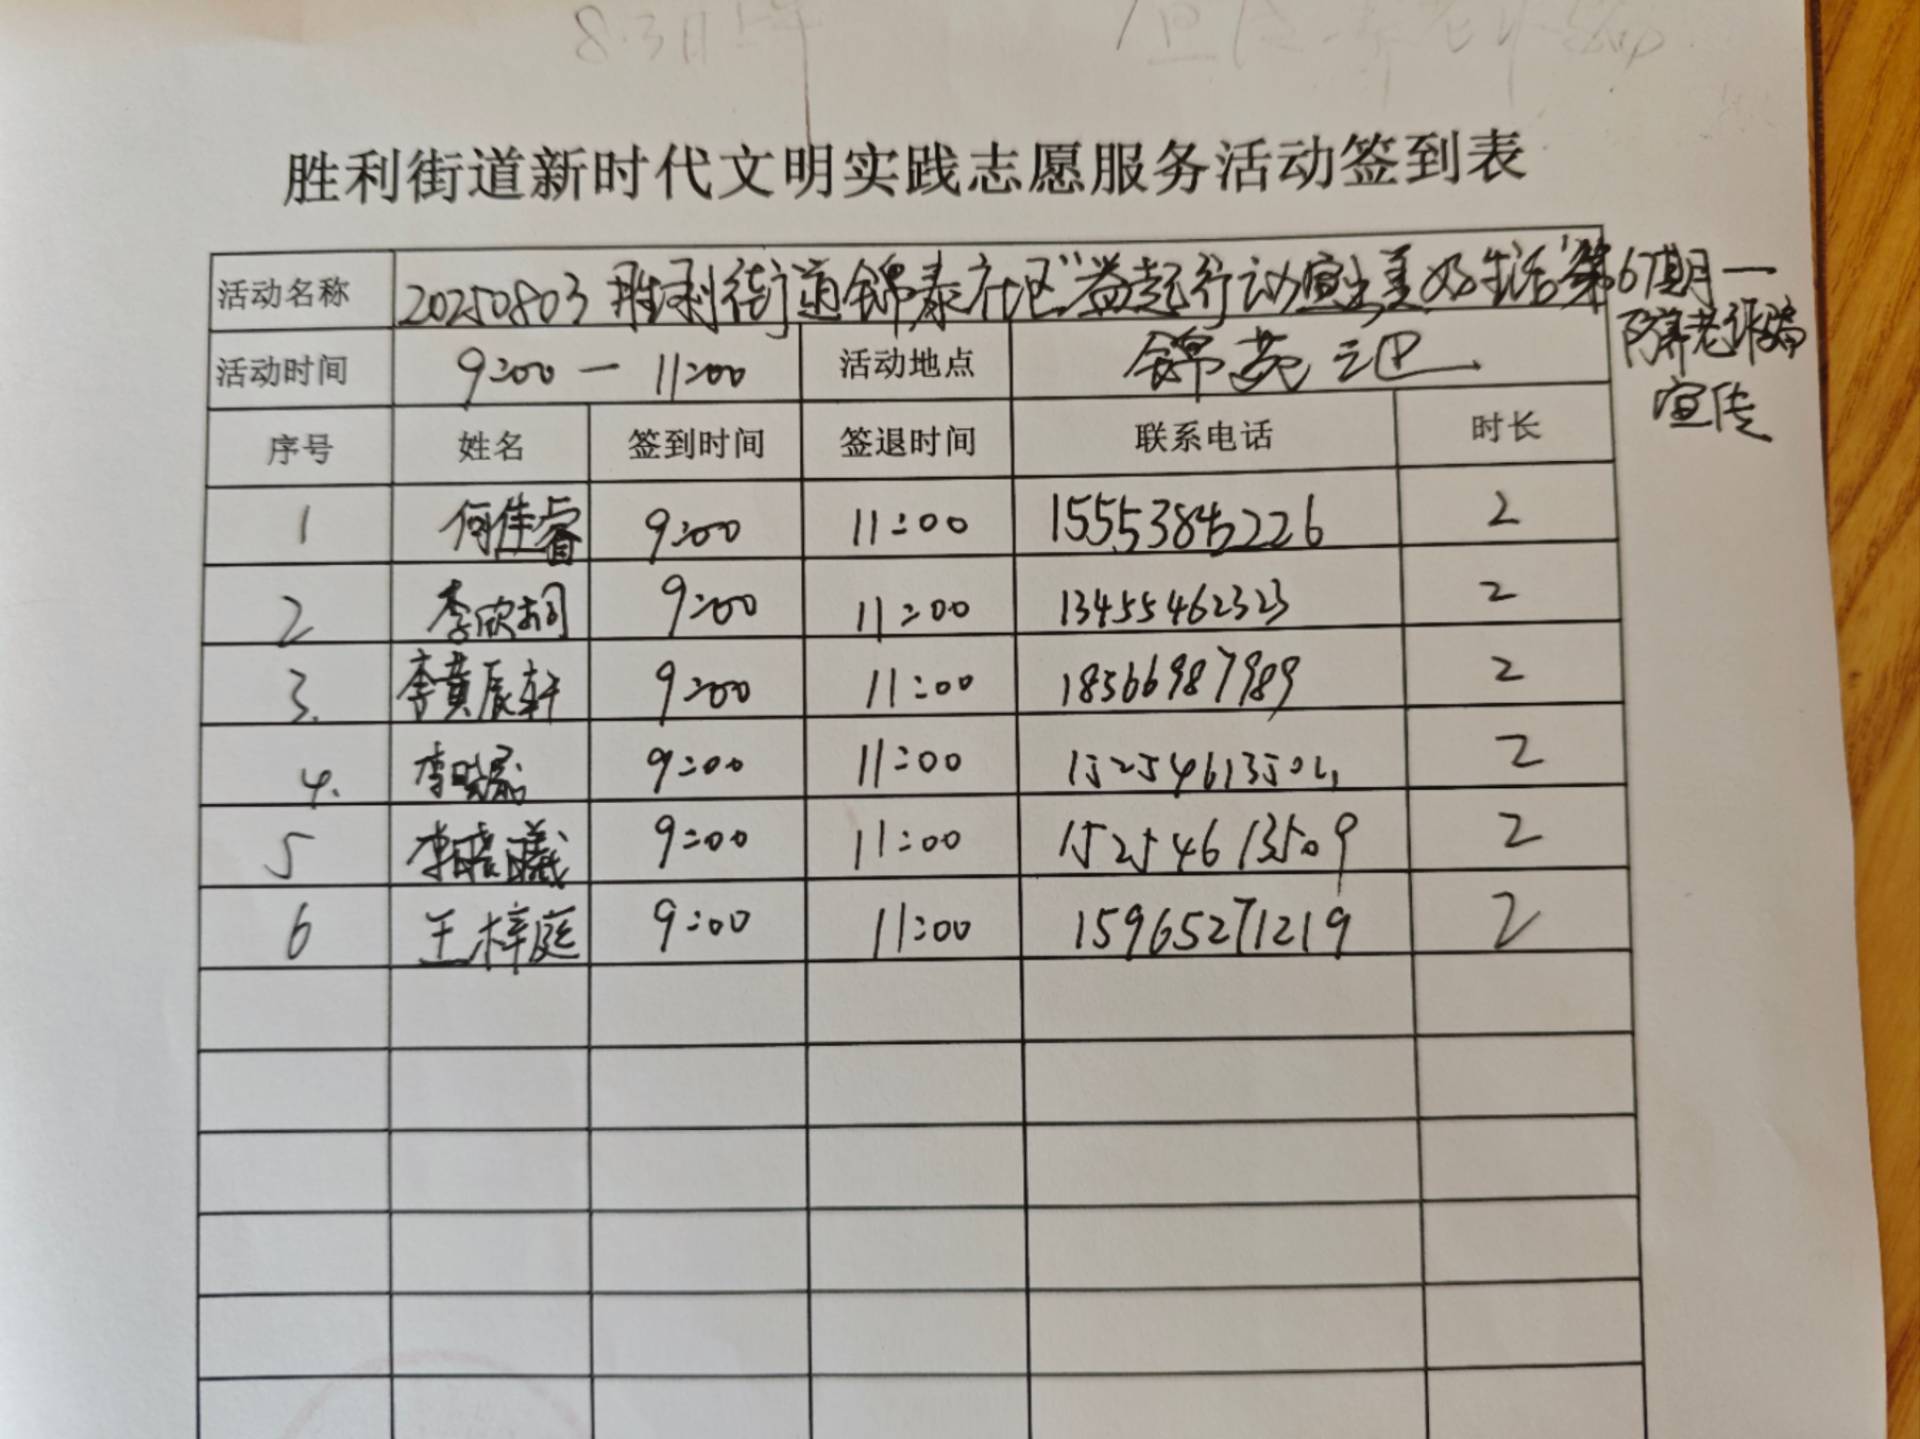 8.3日上午
胜利街道新时代文明实践志愿服务活动签到表
活动名称 20250803 胜利街道锦泰社区“益起行动宣出美好生活”第67期一
防养老诈骗
宣传
活动时间 9:00 — 11:00 活动地点 锦苑三区
序号 姓名 签到时间 签退时间 联系电话 时长
1 何佳睿 9:00 11:00 15553845226 2
2 李欣桐 9:00 11:00 13455462323 2
3. 李黄辰轩 9:00 11:00 18566987989 2
4. 李 9:00 11:00 2
5 李皓曦 9:00 11:00 15254613509 2
6 王梓庭 9:00 11:00 15965271219 2